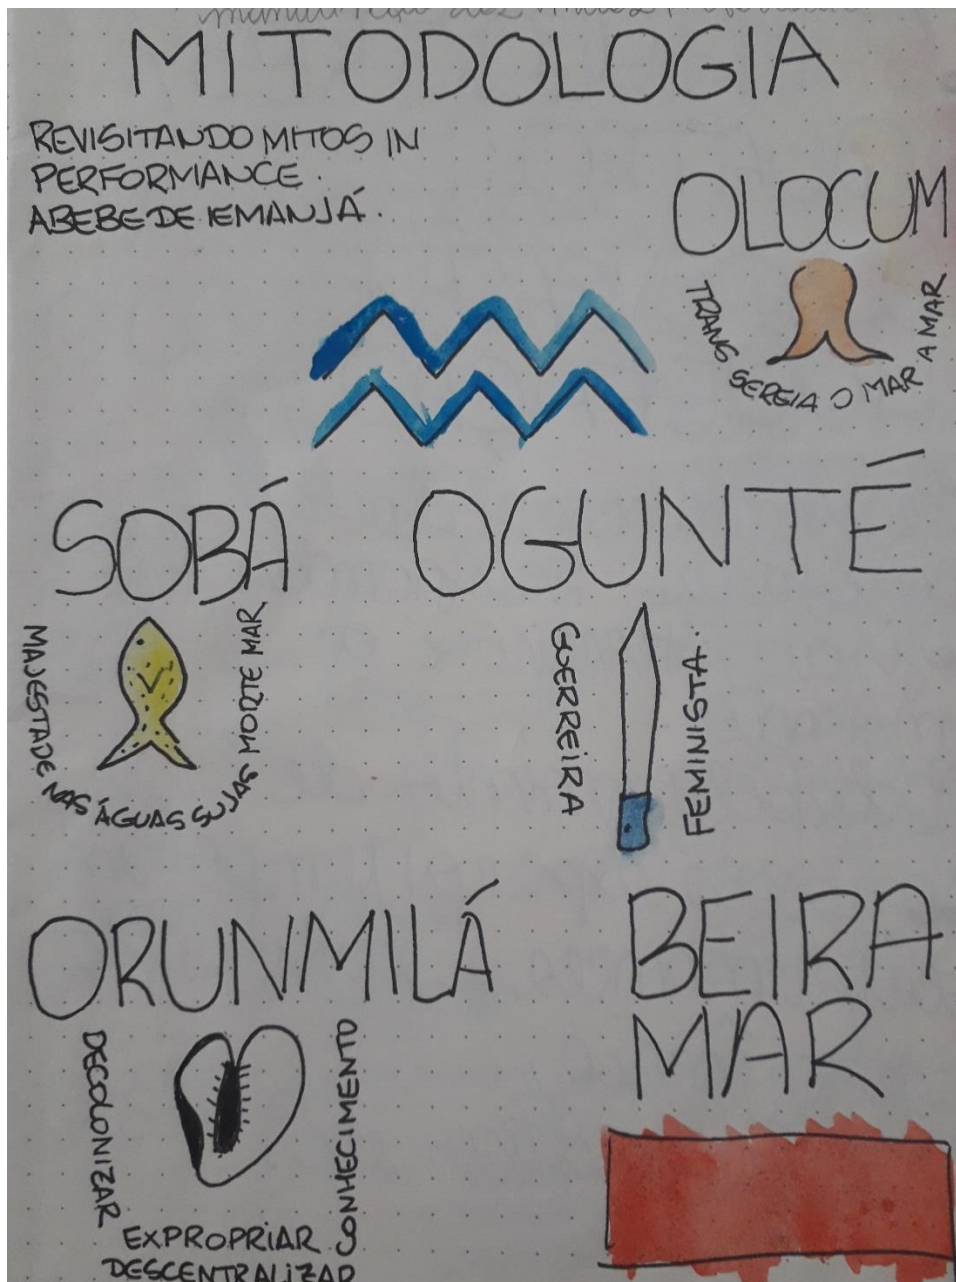 MITODOLOGIA
REVISITANDO MITOS IN
PERFORMANCE.
ABEBE DE IEMANJÁ.
OLOCUM
TRANS SEREIA O MAR A MAR
SOBÁ
MAJESTADE NAS ÁGUAS SUJAS MORTE MAR
OGUNTÉ
GUERREIRA
FEMINISTA.
ORUNMILÁ
DECOLONIZAR
EXPROPRIAR
DESCENTRALIZAR
CONHECIMENTO
BEIRA
MAR